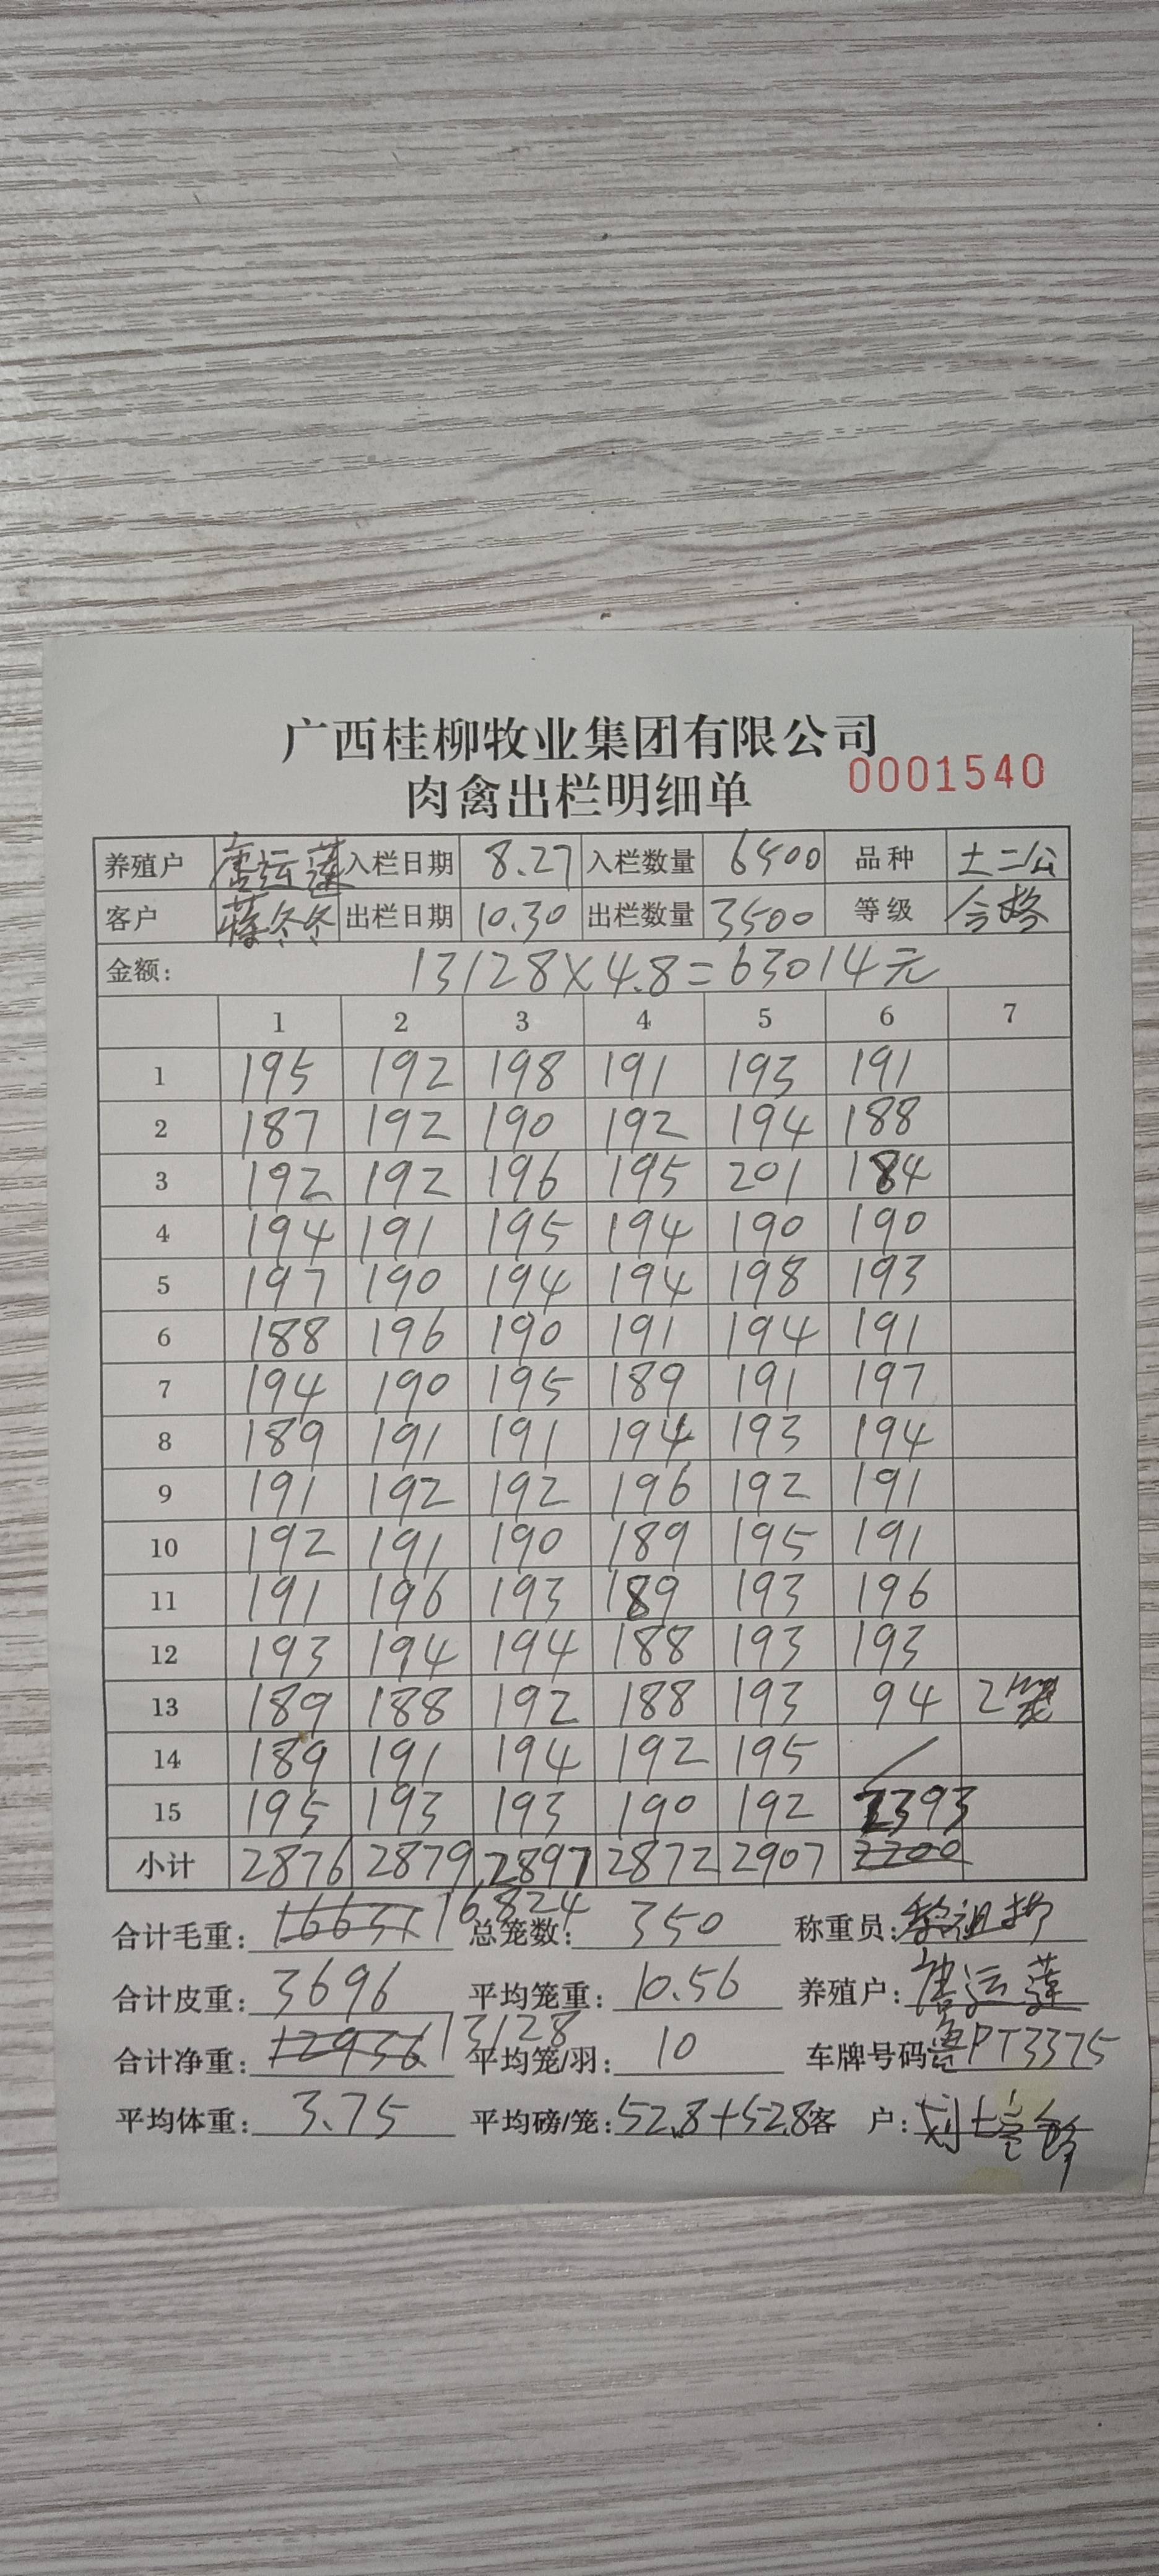 广西桂柳牧业集团有限公司
肉禽出栏明细单 0001540
养殖户 唐运莲 入栏日期 8.27 入栏数量 6500 品种 土二公
客户 蒋冬冬 出栏日期 10.30 出栏数量 3500 等级 合格
金额: 13128×4.8=63014元
1 2 3 4 5 6 7
1 195 192 198 191 193 191
2 187 192 190 192 194 188
3 192 192 196 195 201 184
4 194 191 195 194 190 190
5 197 190 194 194 198 193
6 188 196 190 191 194 191
7 194 190 195 189 191 197
8 189 191 191 194 193 194
9 191 192 192 196 192 191
10 192 191 190 189 195 191
11 191 196 193 189 193 196
12 193 194 194 188 193 193
13 189 188 192 188 193 94 2笼
14 189 191 194 192 195 /
15 195 193 193 190 192 2393
小计 2876 2879 2897 2872 2907 2200
合计毛重: 16631 16824 总笼数: 350 称重员:
合计皮重: 3696 平均笼重: 10.56 养殖户: 唐运莲
合计净重: 12936 13128 平均笼/羽: 10 车牌号码 鲁PT3375
平均体重: 3.75 平均磅/笼: 52.8+52.8 客 户: